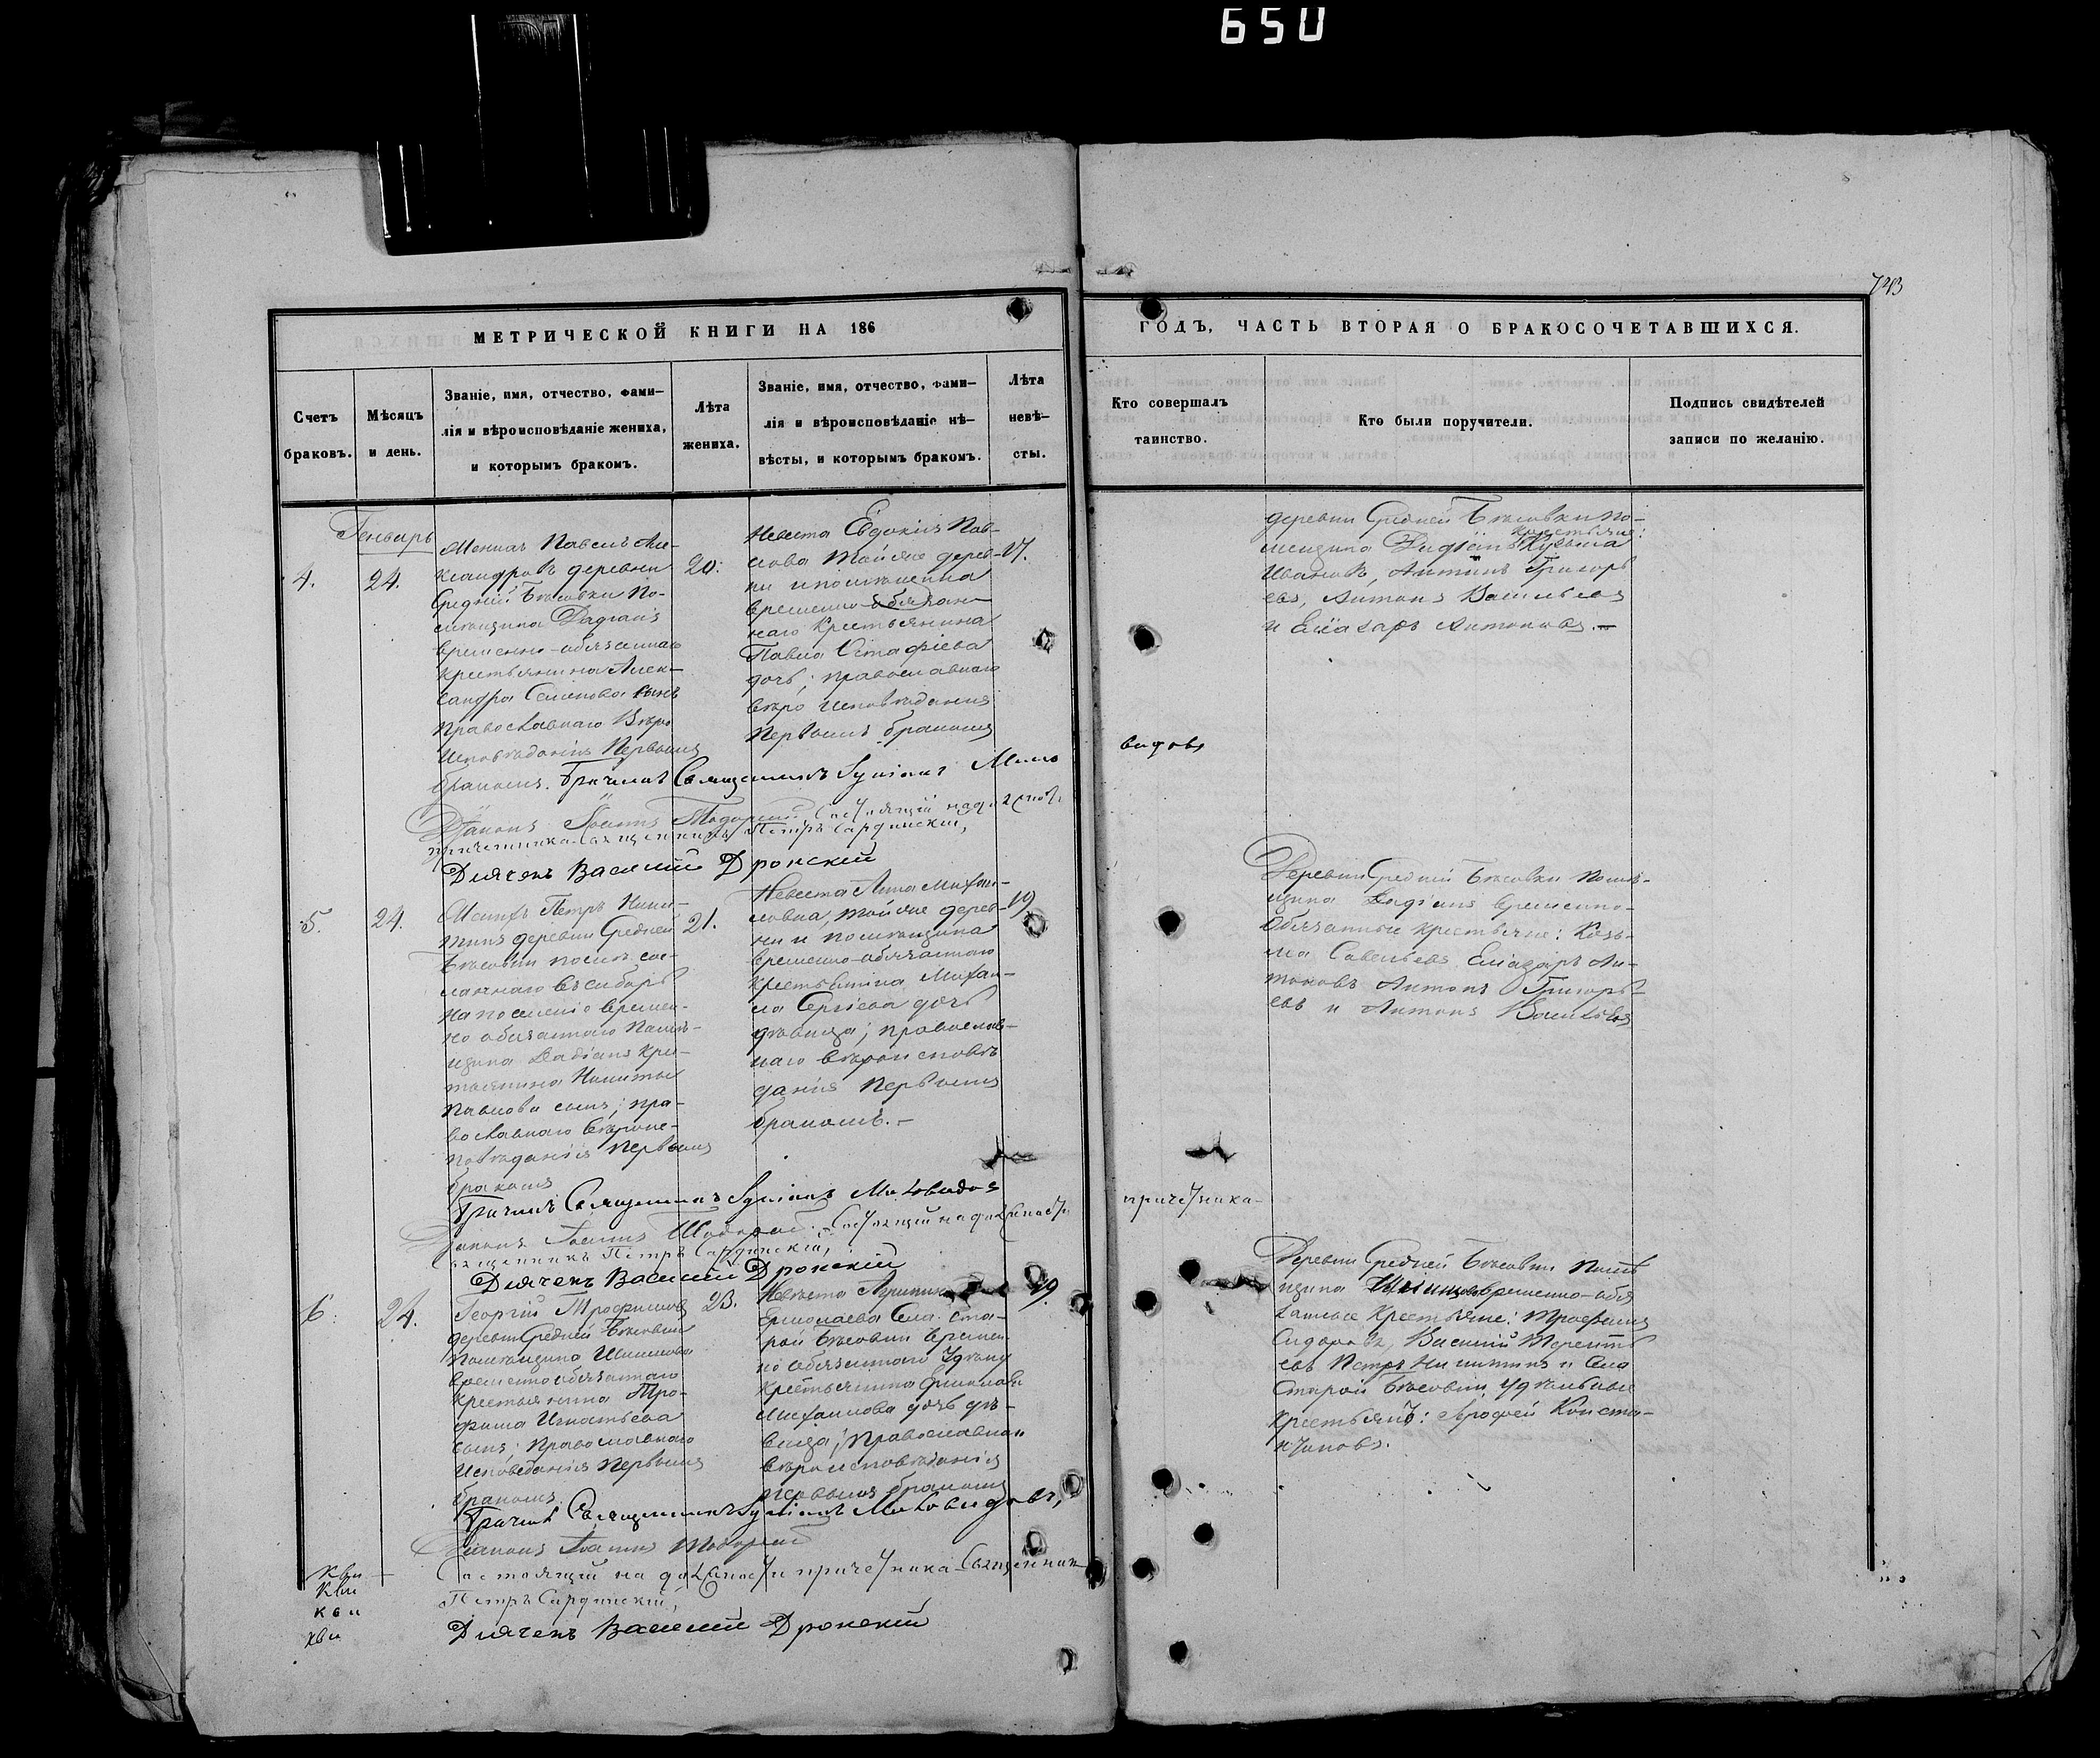 650
743
МЕТРИЧЕСКОЙ КНИГИ НА 186
ГОДЪ, ЧАСТЬ ВТОРАЯ О БРАКОСОЧЕТАВШИХСЯ.
Счетъ
браковъ.
Мѣсяцъ
и день.
Званіе, имя, отчество, фами-
лія и вѣроисповѣданіе жениха,
и которымъ бракомъ.
Лѣта
жениха.
Званіе, имя, отчество, фами-
лія и вѣроисповѣданіе не-
вѣсты, и которымъ бракомъ.
Лѣта
невѣ-
сты.
Кто совершалъ
таинство.
Кто были поручители.
Подпись свидѣтелей
записи по желанію.
Генварь
4.
24.
Женихъ Павелъ Але-
ксандровъ деревни
Средней Бѣковки По-
мѣщика Дадіанъ
временно-обязаннаго
крестьянина Алек-
сандра Семенова сынъ
Православнаго Вѣро
Исповѣданія Первымъ
бракомъ.
20.
Невѣста Евдокія Пав-
лова той же дерев-
ни и помѣщика
временно обязан-
наго Крестьянина
Павла Стафіева
дочь; православнаго
вѣро исповѣданія
Первымъ бракомъ
17.
деревни Средней по-
мѣщика Дадіанъ крестьяне: Кузьма
Ивановъ, Антонъ Григорь
евъ, Антонъ Васильевъ
и Елазаръ Антоновъ.—
Вѣнчалъ Священникъ Мило
видовъ
Діаконъ Іоаннъ Состоящій на должности
причетника Священникъ Петръ Сардинскій,
Дьячекъ Василій Дронскій
5.
24.
Женихъ Петръ Ники-
тинъ деревни Средней
сос-
ланнаго въ сибирь
на поселеніе времен-
но обязаннаго Помѣ-
щика Дадіанъ Крес-
тьянина Никиты
Павлова сынъ; пра-
вославнаго Вѣроис-
повѣданія первымъ
бракомъ
21.
Невѣста Анна Михай-
ловна, той же дерев-
ни и помѣщика
временно-обязаннаго
крестьянина Михаи-
ла Сергіева дочь
дѣвица; православ-
наго вѣроисповѣ
данія Первымъ
бракомъ.—
19
Деревни Средней помѣ-
щика Дадіанъ временно-
Обязанные крестьяне: Козь-
ма Савельевъ Елазаръ Ан-
тоновъ Антонъ Григорь-
евъ и Антонъ Васильевъ
Вѣнчалъ Священникъ Миловидовъ
Діаконъ Іоаннъ Состоящій на должности
причетника-
Священникъ Петръ Сардинскій,
Дьячекъ Василій Дронскій
6.
24.
Георгій Трофимовъ
деревни Средней
Помѣщика
временно обязаннаго
крестьянина Тро-
фима Игнатьева
сынъ; Православнаго
Исповѣданія Первымъ
бракомъ
23.
Невѣста
Ермолаева Села Ста-
рой времен-
но обязаннаго
крестьянина Ермолая
Михайлова дочь дѣ-
вица; Православнаго
вѣроисповѣданія
первымъ бракомъ
19.
Деревни Средней Помѣ
щика временно-обя
занные Крестьяне: Трофимъ
Сидоровъ, Василій Терентъ
евъ Петръ Никитинъ и Села
Старой Удѣльные
крестьяне: Ерофей Конста-
нтиновъ.
Вѣнчалъ Священникъ Миловидовъ,
Діаконъ Іоаннъ
Состоящій на должности причетника-Священникъ
Петръ Сардинскій,
Дьячекъ Василій Дронскій